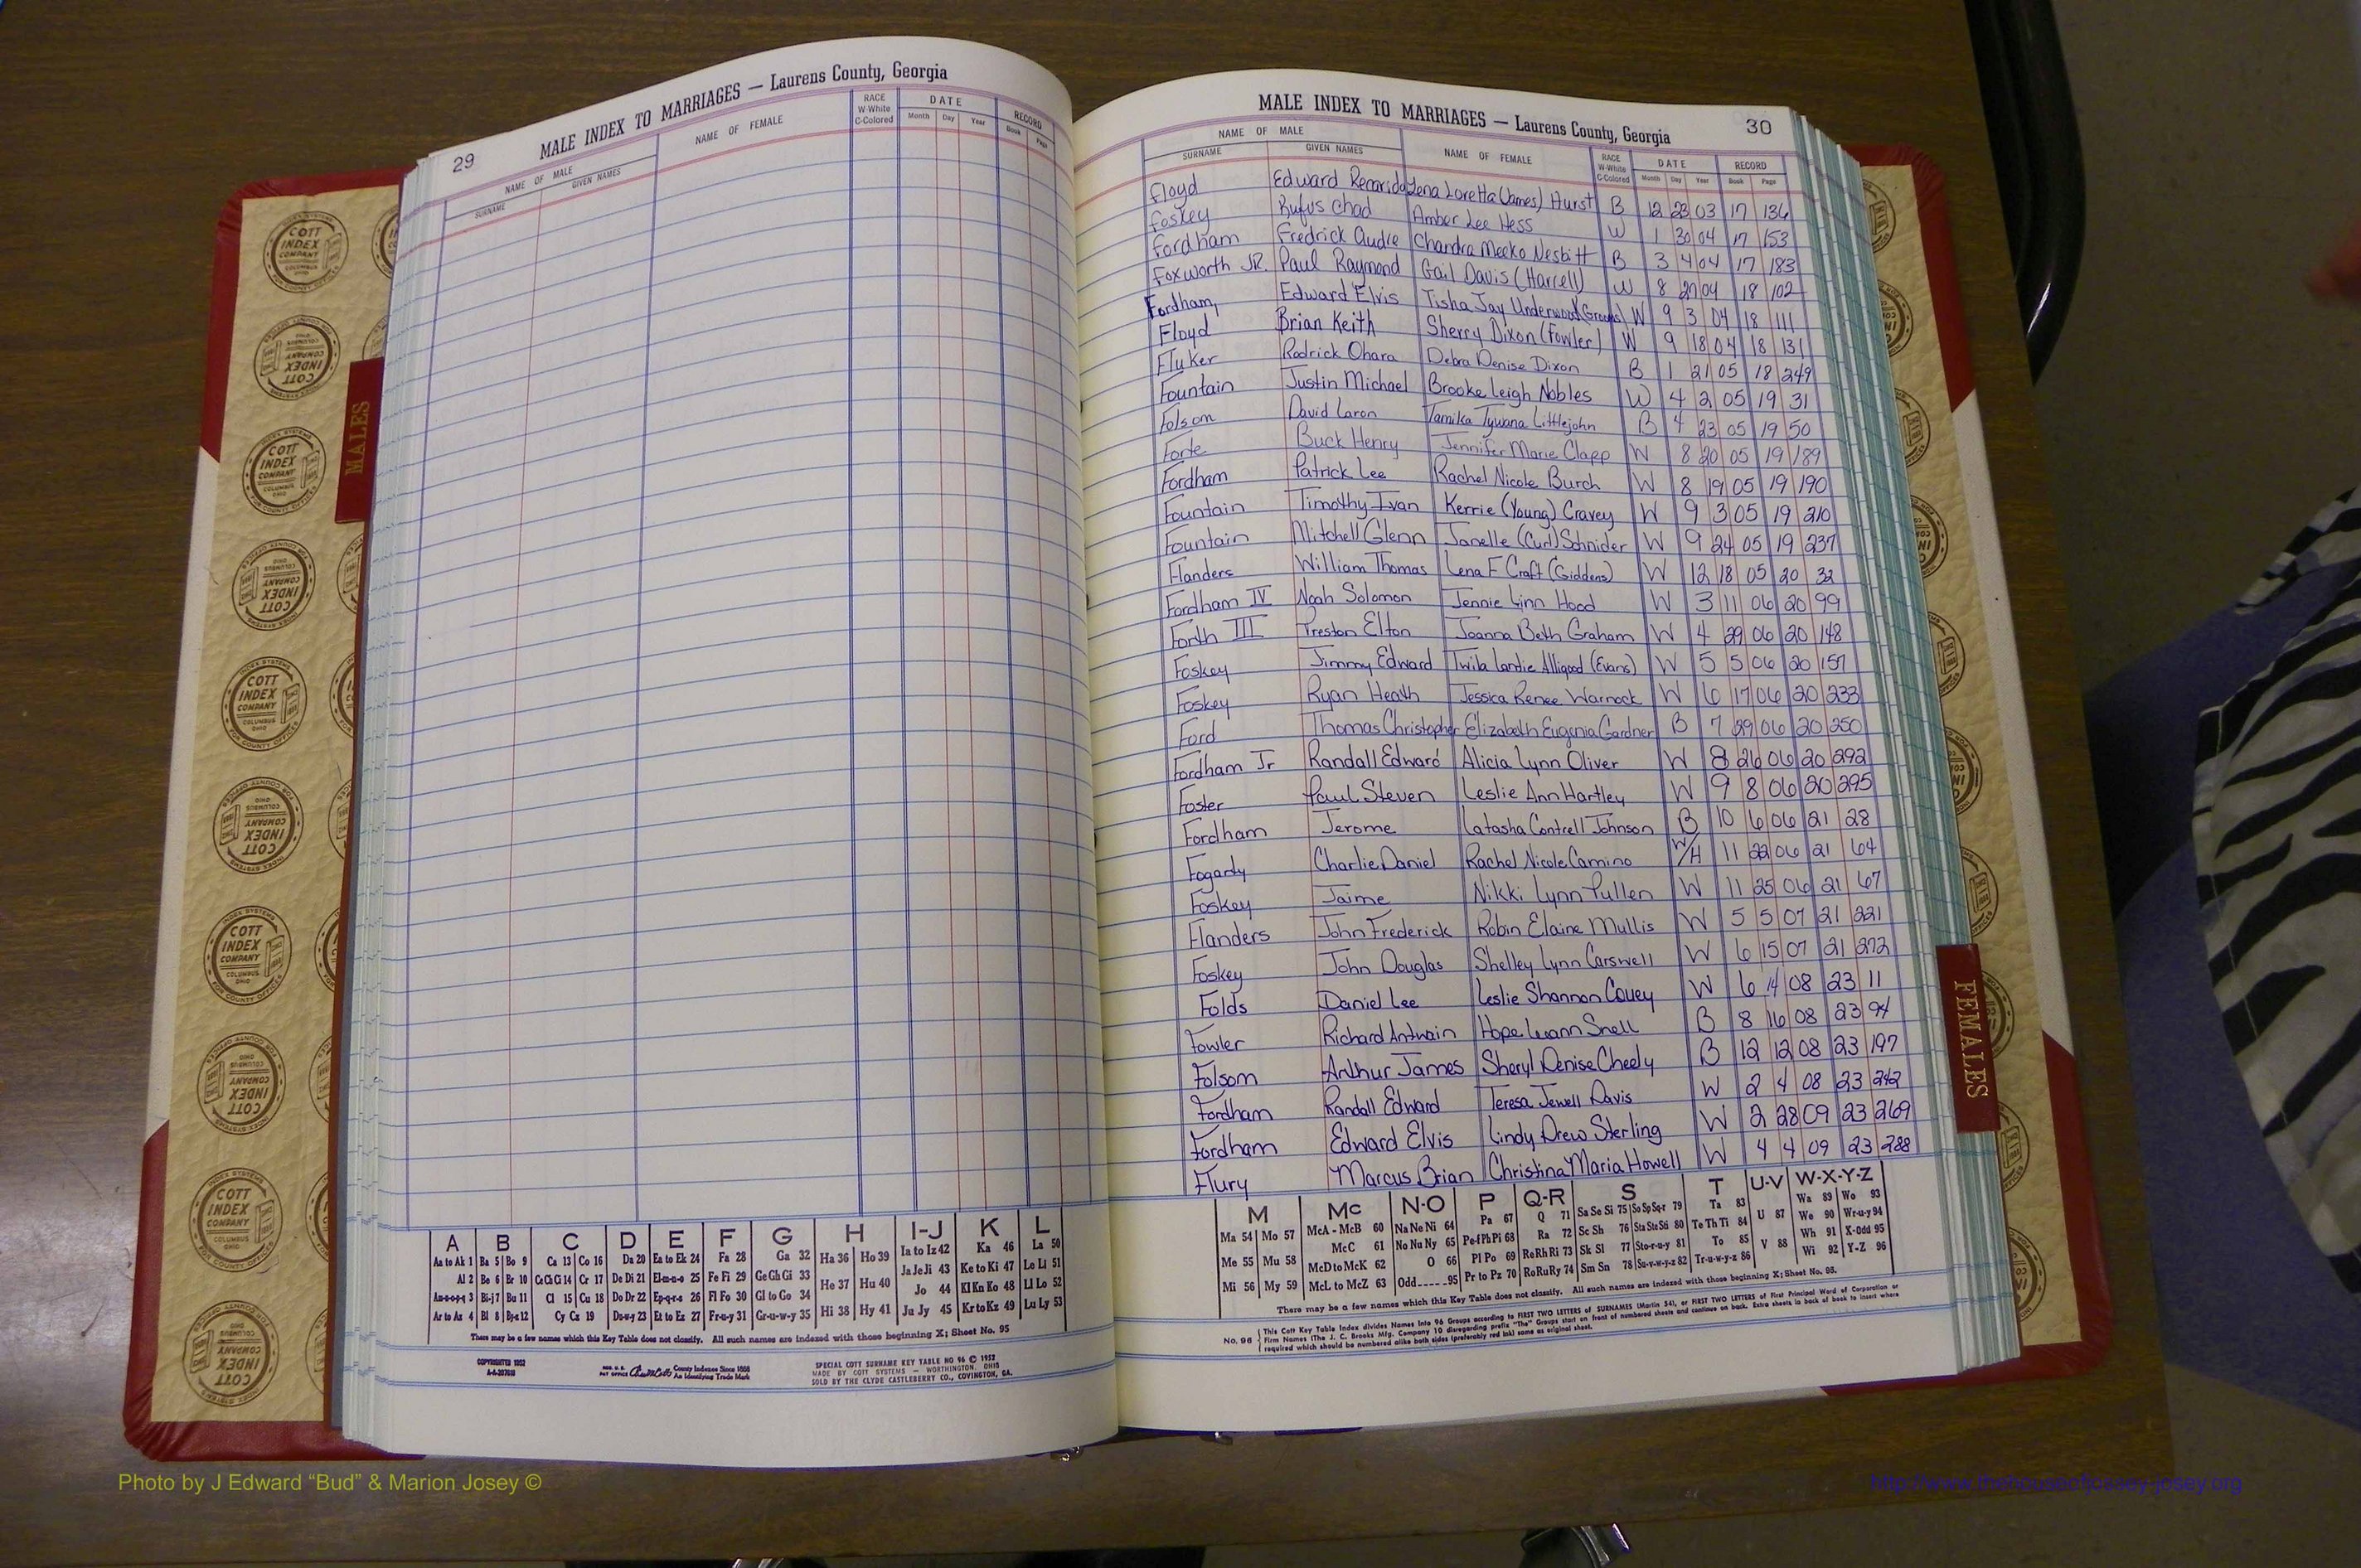 29
MALE INDEX TO MARRIAGES — Laurens County, Georgia
NAME OF MALE NAME OF FEMALE RACE W-White C-Colored DATE RECORD
SURNAME GIVEN NAMES Month Day Year Book Page
MALES
A B C D E F G H I-J K L
Aa to Ak 1 Ba 5 Bo 9 Ca 13 Co 16 Da 20 Ea to Ek 24 Fa 28 Ga 32 Ha 36 Ho 39 Ia to Iz 42 Ka 46 La 50
Al 2 Be 6 Br 10 Ce Ch Ci 14 Cr 17 De Di 21 El-m-n-o 25 Fe Fi 29 Ge Gh Gi 33 He 37 Hu 40 Ja Je Ji 43 Ke to Ki 47 Le Li 51
Am-n-o-p-q 3 Bi-j 7 Bu 11 Cl 15 Cu 18 Do Dr 22 Ep-q-r-s 26 Fl Fo 30 Gl to Go 34 Jo 44 Kl Kn Ko 48 Ll Lo 52
Ar to Az 4 Bl 8 By-z 12 Cy Cz 19 Du-w-y 23 Et to Ez 27 Fr-u-y 31 Gr-u-w-y 35 Hi 38 Hy 41 Ju Jy 45 Kr to Kz 49 Lu Ly 53
There may be a few names which this Key Table does not classify. All such names are indexed with those beginning X; Sheet No. 95
COPYRIGHTED 1952
County Indexes Since 1888
An Identifying Trade Mark
SPECIAL COTT SURNAME KEY TABLE NO 96 © 1952
MADE BY COTT SYSTEMS — WORTHINGTON, OHIO
SOLD BY THE CLYDE CASTLEBERRY CO., COVINGTON, GA.
MALE INDEX TO MARRIAGES — Laurens County, Georgia 30
NAME OF MALE NAME OF FEMALE RACE W-White C-Colored DATE RECORD
SURNAME GIVEN NAMES Month Day Year Book Page
Floyd Edward Recardo Lena Loretta (James) Hurst B 12 23 03 17 136
Foskey Rufus Chad Amber Lee Hess W 1 30 04 17 153
Fordham Fredrick Audre Chandra Meeko Nesbitt B 3 4 04 17 183
Foxworth JR. Paul Raymond Gail Davis (Harrell) W 8 27 04 18 102
Fordham, Edward Elvis Tisha Jay Underwood W 9 3 04 18 111
Floyd Brian Keith Sherry Dixon (Fowler) W 9 18 04 18 131
Fluker Rodrick Ohara Debra Denise Dixon B 1 21 05 18 249
Fountain Justin Michael Brooke Leigh Nobles W 4 2 05 19 31
Folsom David Laron Tamika Tywana Littlejohn B 4 23 05 19 50
Forte Buck Henry Jennifer Marie Clapp W 8 20 05 19 189
Fordham Patrick Lee Rachel Nicole Burch W 8 19 05 19 190
Fountain Timothy Ivan Kerrie (Young) Cravey W 9 3 05 19 210
Fountain Mitchell Glenn Janelle (Curl) Schnider W 9 24 05 19 237
Flanders William Thomas Lena F Craft (Giddens) W 12 18 05 20 32
Fordham IV Noah Solomon Jennie Linn Hood W 3 11 06 20 99
Forth III Preston Elton Joanna Beth Graham W 4 29 06 20 148
Foskey Jimmy Edward Twila Landie Alligood (Evans) W 5 5 06 20 157
Foskey Ryan Heath Jessica Renee Warnock W 6 17 06 20 233
Ford Thomas Christopher Elizabeth Eugenia Gardner B 7 29 06 20 250
Fordham Jr Randall Edward Alicia Lynn Oliver W 8 26 06 20 292
Foster Paul Steven Leslie Ann Hartley W 9 8 06 20 295
Fordham Jerome Latasha Contrell Johnson B 10 6 06 21 28
Fogarty Charlie Daniel Rachel Nicole Camino W/H 11 22 06 21 64
Foskey Jaime Nikki Lynn Pullen W 11 25 06 21 67
Flanders John Frederick Robin Elaine Mullis W 5 5 07 21 221
Foskey John Douglas Shelley Lynn Carswell W 6 15 07 21 272
Folds Daniel Lee Leslie Shannon Covey W 6 14 08 23 11
Fowler Richard Antwain Hope Leann Snell B 8 16 08 23 94
Folsom Arthur James Sheryl Denise Cheely B 12 12 08 23 197
Fordham Randall Edward Teresa Jewell Davis W 2 4 08 23 242
Fordham Edward Elvis Lindy Drew Sterling W 2 28 09 23 269
Flury Marcus Brian Christina Maria Howell W 4 4 09 23 288
FEMALES
M Mc N-O P Q-R S T U-V W-X-Y-Z
Ma 54 Mo 57 McA - McB 60 Na Ne Ni 64 Pa 67 Q 71 Sa Se Si 75 So Sp Sq-r 79 Ta 83 U 87 Wa 89 Wo 93
Me 55 Mu 58 McC 61 No Nu Ny 65 Pe-f Ph Pi 68 Ra 72 Sc Sh 76 Sta Ste Sti 80 Te Th Ti 84 We 90 Wr-u-y 94
McD to McK 62 O 66 Pl Po 69 Re Rh Ri 73 Sk Sl 77 Sto-r-u-y 81 To 85 V 88 Wh 91 X-Odd 95
Mi 56 My 59 McL to McZ 63 Odd 95 Pr to Pz 70 Ro Ru Ry 74 Sm Sn 78 Su-v-w-y-z 82 Tr-u-w-y-z 86 Wi 92 Y-Z 96
There may be a few names which this Key Table does not classify. All such names are indexed with those beginning X; Sheet No. 95.
No. 96 This Cott Key Table Index divides Names into 96 Groups according to FIRST TWO LETTERS of SURNAMES (Martin 54), or FIRST TWO LETTERS of First Principal Word of Corporation or
Firm Names (The J. C. Brooks Mfg. Company 10 disregarding prefix "The" Groups start on front of numbered sheets and continue on back. Extra sheets in back of book to insert where
required which should be numbered alike both sides (preferably red ink) same as original sheet.
COTT INDEX COMPANY COLUMBUS OHIO
INDEX SYSTEMS FOR COUNTY OFFICES
Photo by J Edward “Bud” & Marion Josey ©
http://www.thehouseofjossey-josey.org